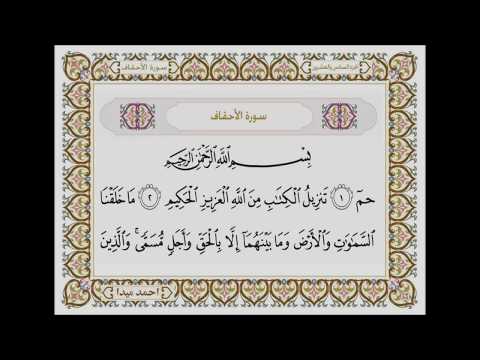 سورة الأحقاف
الجزء السادس والعشرون
سورة الأحقاف
بِسْمِ ٱللَّهِ ٱلرَّحْمَٰنِ ٱلرَّحِيمِ
حمٓ ١ تَنزِيلُ ٱلْكِتَٰبِ مِنَ ٱللَّهِ ٱلْعَزِيزِ ٱلْحَكِيمِ ٢ مَا خَلَقْنَا
ٱلسَّمَٰوَٰتِ وَٱلْأَرْضَ وَمَا بَيْنَهُمَآ إِلَّا بِٱلْحَقِّ وَأَجَلٍ مُّسَمًّى ۚ وَٱلَّذِينَ
احمد ميدا